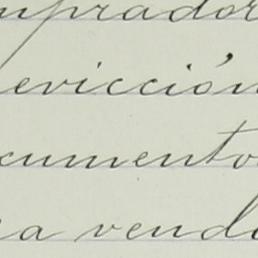 mprador
evicción
cumento
a vend